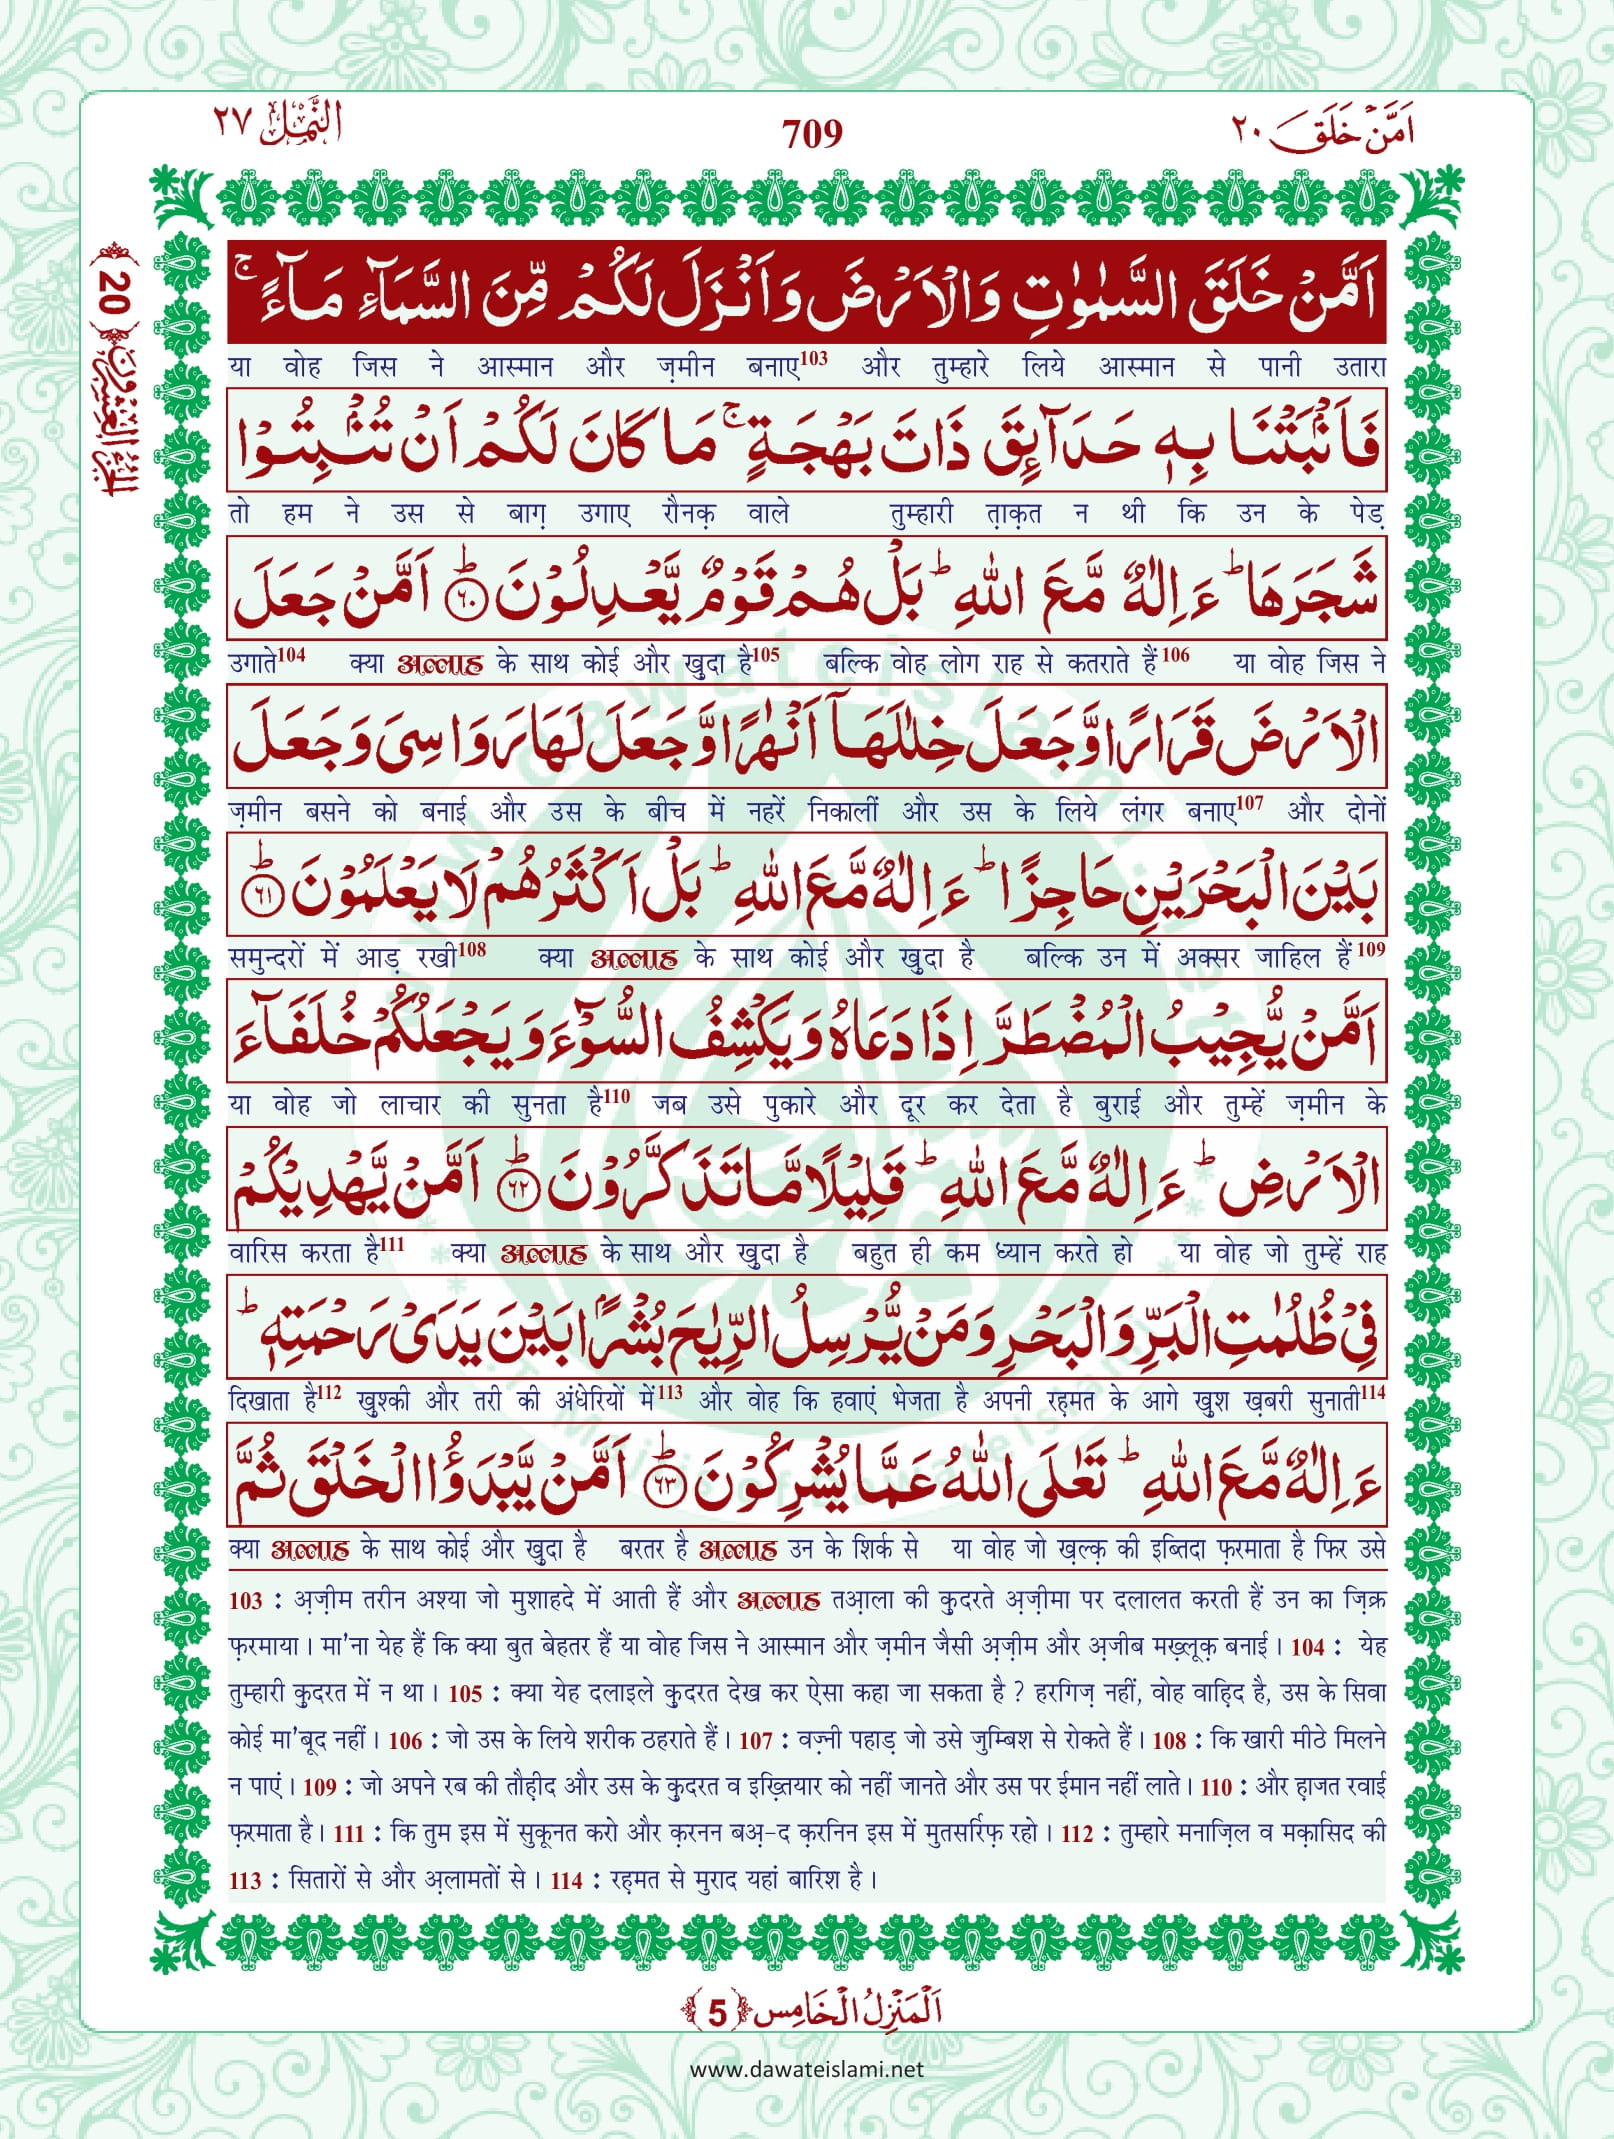 اَمَّنْ خَلَقَ ٢٠
709
النَّمْل ٢٧
اَلْجُزْءُ الْعِشْرُوْنَ ﴿20﴾
اَمَّنْ خَلَقَ السَّمٰوٰتِ وَالْاَرْضَ وَاَنْزَلَ لَكُمْ مِّنَ السَّمَآءِ مَآءً ۚ
या वोह जिस ने आस्मान और ज़मीन बनाए103 और तुम्हारे लिये आस्मान से पानी उतारा
فَاَنْۢبَتْنَا بِهٖ حَدَآىِٕقَ ذَاتَ بَهْجَةٍ ۚ مَا كَانَ لَكُمْ اَنْ تُنْۢبِتُوْا
तो हम ने उस से बाग़ उगाए रौनक़ वाले तुम्हारी ता़क़त न थी कि उन के पेड़
شَجَرَهَا ؕ ءَاِلٰهٌ مَّعَ اللّٰهِ ؕ بَلْ هُمْ قَوْمٌ یَّعْدِلُوْنَ ؕ ﴿۶۰﴾ اَمَّنْ جَعَلَ
उगाते104 क्या अल्लाह के साथ कोई और खु़दा है105 बल्कि वोह लोग राह से कतराते हैं106 या वोह जिस ने
الْاَرْضَ قَرَارًا وَّجَعَلَ خِلٰلَهَاۤ اَنْهٰرًا وَّجَعَلَ لَهَا رَوَاسِیَ وَجَعَلَ
ज़मीन बसने को बनाई और उस के बीच में नहरें निकालीं और उस के लिये लंगर बनाए107 और दोनों
بَیْنَ الْبَحْرَیْنِ حَاجِزًا ؕ ءَاِلٰهٌ مَّعَ اللّٰهِ ؕ بَلْ اَكْثَرُهُمْ لَا یَعْلَمُوْنَ ؕ ﴿۶۱﴾
समुन्दरों में आड़ रखी108 क्या अल्लाह के साथ कोई और खु़दा है बल्कि उन में अक्सर जाहिल हैं109
اَمَّنْ یُّجِیْبُ الْمُضْطَرَّ اِذَا دَعَاهُ وَیَكْشِفُ السُّوْٓءَ وَیَجْعَلُكُمْ خُلَفَآءَ
या वोह जो लाचार की सुनता है110 जब उसे पुकारे और दूर कर देता है बुराई और तुम्हें ज़मीन के
الْاَرْضِ ؕ ءَاِلٰهٌ مَّعَ اللّٰهِ ؕ قَلِیْلًا مَّا تَذَكَّرُوْنَ ؕ ﴿۶۲﴾ اَمَّنْ یَّهْدِیْكُمْ
वारिस करता है111 क्या अल्लाह के साथ और खु़दा है बहुत ही कम ध्यान करते हो या वोह जो तुम्हें राह
فِیْ ظُلُمٰتِ الْبَرِّ وَالْبَحْرِ وَمَنْ یُّرْسِلُ الرِّیٰحَ بُشْرًۢا بَیْنَ یَدَیْ رَحْمَتِهٖ ؕ
दिखाता है112 खु़श्की और तरी की अंधेरियों में113 और वोह कि हवाएं भेजता है अपनी रह़मत के आगे खु़श ख़बरी सुनाती114
ءَاِلٰهٌ مَّعَ اللّٰهِ ؕ تَعٰلَی اللّٰهُ عَمَّا یُشْرِكُوْنَ ؕ ﴿۶۳﴾ اَمَّنْ یَّبْدَؤُا الْخَلْقَ ثُمَّ
क्या अल्लाह के साथ कोई और खु़दा है बरतर है अल्लाह उन के शिर्क से या वोह जो ख़ल्क़ की इब्तिदा फ़रमाता है फिर उसे
103 : अ़ज़ीम तरीन अश्या जो मुशाहदे में आती हैं और अल्लाह तआ़ला की कु़दरते अ़ज़ीमा पर दलालत करती हैं उन का ज़िक्र
फ़रमाया । मा'ना येह हैं कि क्या बुत बेहतर हैं या वोह जिस ने आस्मान और ज़मीन जैसी अ़ज़ीम और अ़जीब मख़्लूक़ बनाई । 104 : येह
तुम्हारी कु़दरत में न था । 105 : क्या येह दलाइले कु़दरत देख कर ऐसा कहा जा सकता है ? हरगिज़ नहीं, वोह वाहि़द है, उस के सिवा
कोई मा'बूद नहीं । 106 : जो उस के लिये शरीक ठहराते हैं । 107 : वज़्नी पहाड़ जो उसे जुम्बिश से रोकते हैं । 108 : कि खारी मीठे मिलने
न पाएं । 109 : जो अपने रब की तौह़ीद और उस के कु़दरत व इख़्तियार को नहीं जानते और उस पर ईमान नहीं लाते । 110 : और ह़ाजत रवाई
फ़रमाता है । 111 : कि तुम इस में सुकूनत करो और क़रनन बअ़-द क़रनिन इस में मुतसर्रिफ़ रहो । 112 : तुम्हारे मनाज़िल व मक़ासिद की
113 : सितारों से और अ़लामतों से । 114 : रह़मत से मुराद यहां बारिश है ।
اَلْمَنْزِلُ الْخَامِس ﴿5﴾
www.dawateislami.net